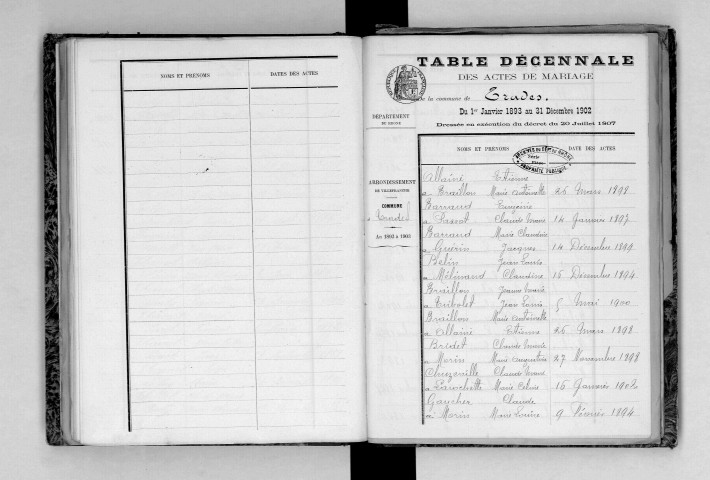 NOMS ET PRÉNOMS DATES DES ACTES
TABLE DÉCENNALE
DES ACTES DE MARIAGE
de la commune de Trades.
Du 1er Janvier 1893 au 31 Décembre 1902
Dressée en exécution du décret du 20 Juillet 1807
DÉPARTEMENT
DU RHONE
ARRONDISSEMENT
DE VILLEFRANCHE
COMMUNE
Trades
An 1893 à 1902
NOMS ET PRÉNOMS DATE DES ACTES
ARCHIVES DU DÉPt DU RHONE
Série
PROPRIÉTÉ PUBLIQUE
Allainé Etienne
a Braillon Marie Antoinette 26 Mars 1898
Barraud
a Claude Marie 14 Janvier 1897
Barraud Marie Claudine
a Guérin Jacques 14 Décembre 1899
Belin Jean Louis
a Mélinand Claudine 15 Décembre 1894
Braillon Jeanne Marie
a Tribolet Jean Louis 5 Mai 1900
Braillon Marie Antoinette
a Allainé Etienne 26 Mars 1898
Bridet Claude Marie
a Morin Marie Augustine 27 Novembre 1898
Chuzeville Claude Marie
a Larochette Marie 15 Janvier 1902
Claude
a Morin Marie Louise 9 Février 1894